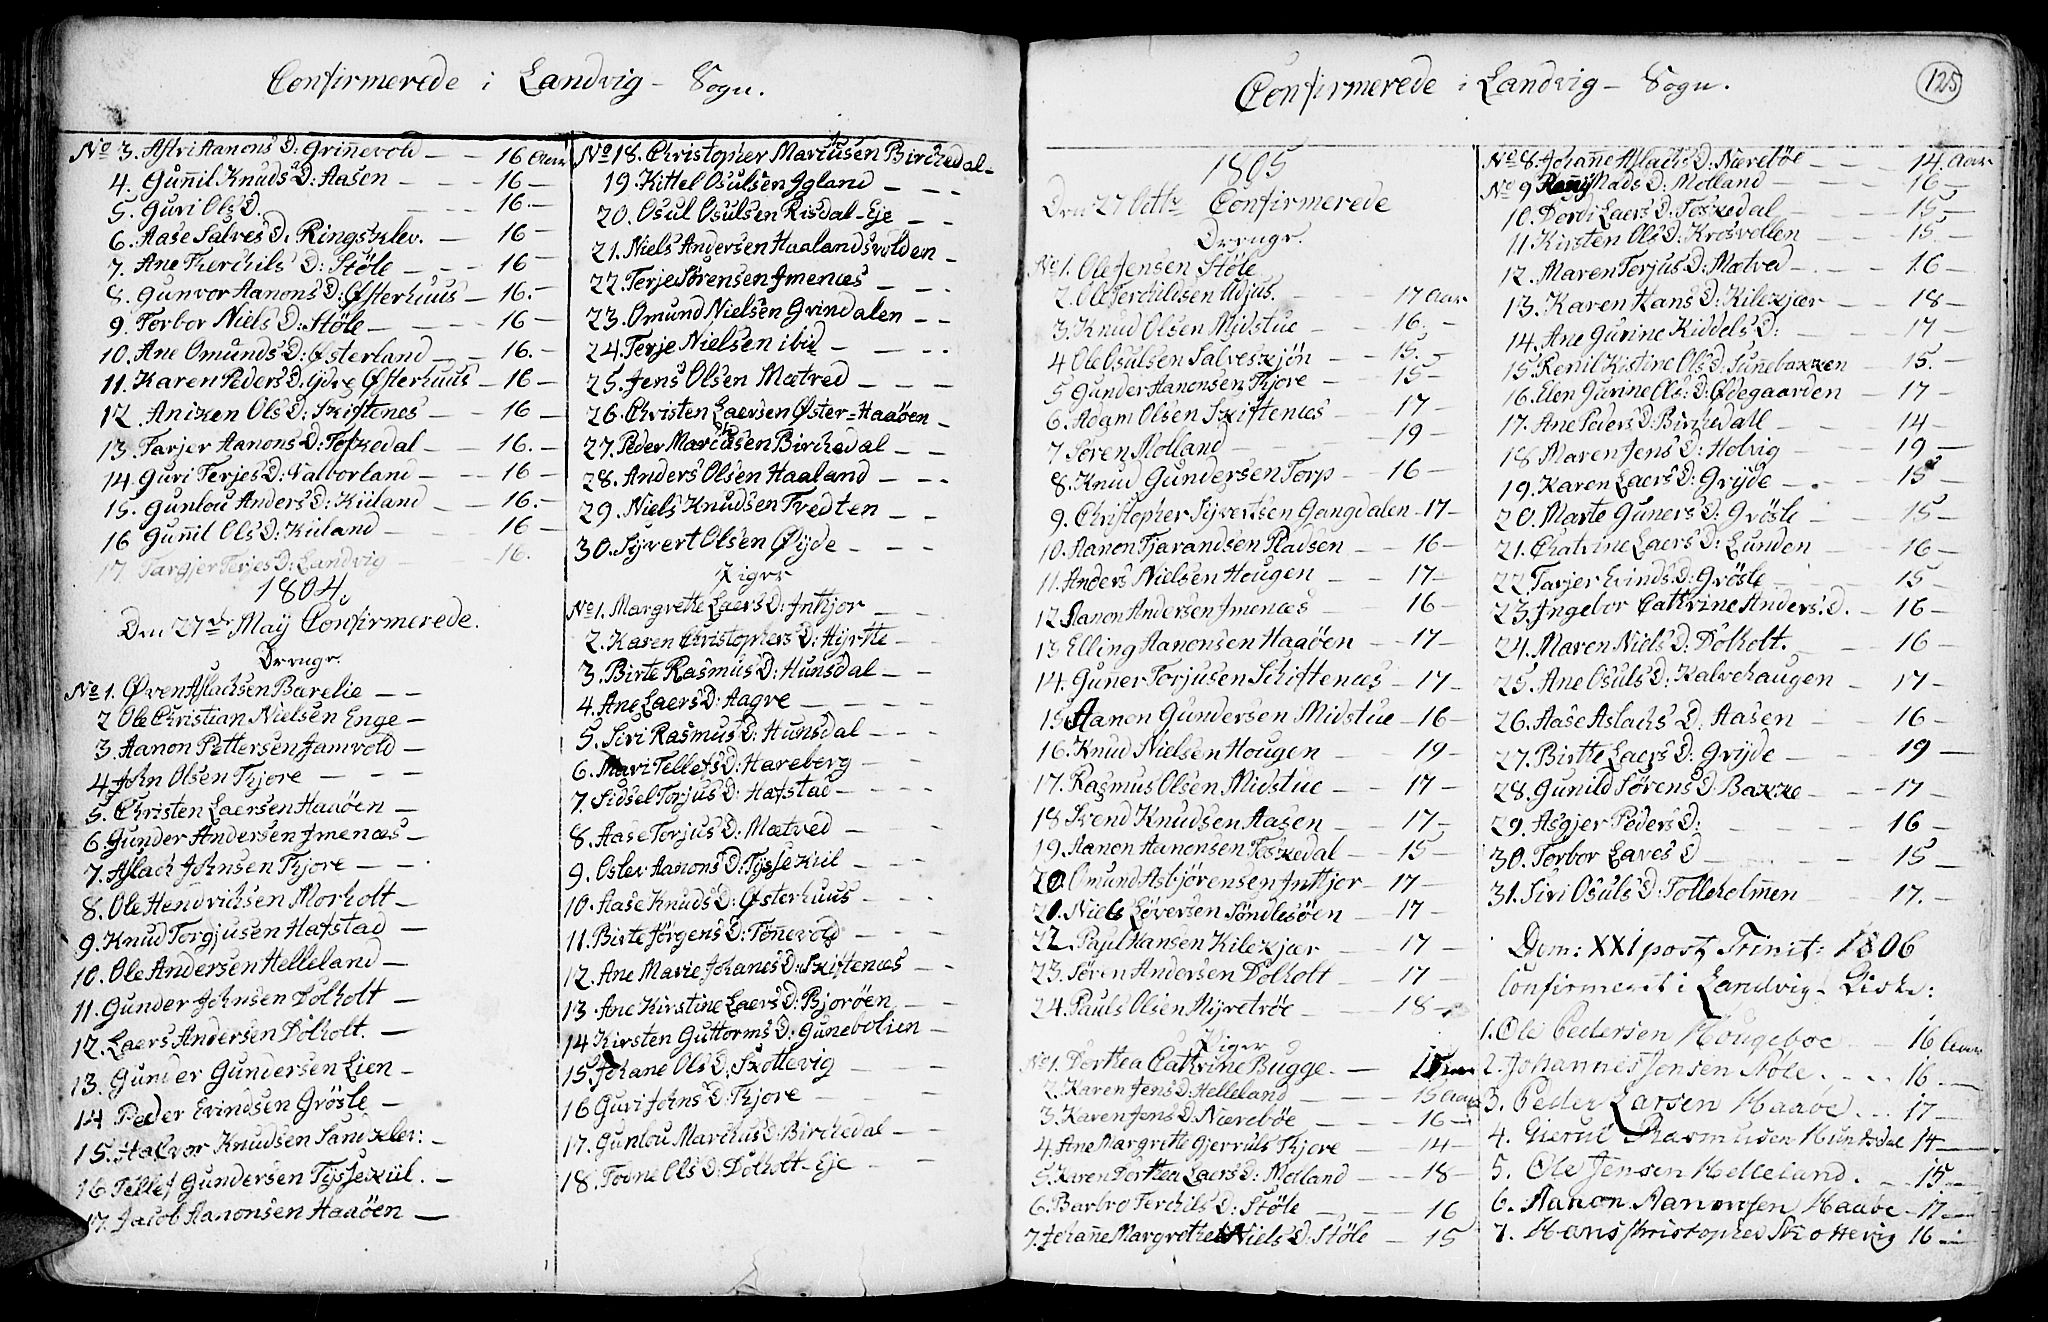 Confirmerede i Landvig - Sogn.
No 3. Astri Aanons D: Grin̄evold - - 16 Aar
4. Gun̄il Knuds D: Aasen - - - 16 -
5. Guri Ols D. - - 16 -
6. Aase Salves D: Ringsklev. - 16 -
7. Ane Therchils D: Støle - - - 16 -
8. Gunvor Aanons D: Østerhuus - 16. -
9. Torbor Niels D: Støle - - - - 16 -
10. Ane Omunds D: Østerland - - 16. -
11. Karen Peders D. Ydre Østerhuus - 16 -
12. Aniken Ols D: Skiftenes - - 16 -
13. Tarjer Aanons D: Toskedal - - 16. -
14. Guri Terjes D: Valborland - - 16 -
15. Gunlou Anders D: Kiiland - - 16. -
16 Gun̄il Ols D: Kiiland - - - 16 -
17 Targjer Terjes D: Landvig - - 16.
1804.
Den 27de Maÿ Confirmerede.
Drenge.
No 1. Øven Aslachsen Barelie - -
2 Ole Christian Nielsen Enge -
3. Aanon Pettersen Jamvold -
4 John Olsen Kjore - - -
5. Christen Laersen Haaöen -
6 Gunder Andersen Jmenæs -
7. Aslach Johnsen Kjore - - -
8. Ole Hendrichsen Morholt -
9. Knud Torgjusen Hafstad -
10. Ole Andersen Helleland -
11. Gunder Johnsen Dolholt -
12. Laers Andersen Dolholt. -
13. Gunder Gundersen Lien -
14 Peder Evindsen Grösle -
15. Halvor Knudsen Sandklev: -
16 Tellef Gundersen Tÿssekiil. -
17. Jacob Aanonsen Haaöen -
No 18. Christopher Marcusen Birchedal -
19. Kittel Osulsen Igland - - -
20. Osul Osulsen Risdal-Eje - -
21. Niels Andersen Haalandsvolden -
22. Terje Sörensen Jmenæs - - -
23. Omund Nielsen Grindalen - -
24. Terje Nielsen ibid - - - -
25. Jens Olsen Mætved - - -
26. Christen Laersen Øster-Haaöen -
27. Peder Marcusen Birchedal - -
28. Anders Olsen Haaland - - -
29. Niels Knudsen Tvedten - -
30. Sÿvert Olsen Øÿde - - -
Piger
No 1. Margrethe Laers D: Inkjor - -
2. Karen Christophers D: Hÿrtte -
3. Birte Rasmus D: Hunsdal - -
4. Ane Laers D: Aagre - - - -
5. Siri Rasmus D: Hunsdal - - -
6. Mari Tellefs D: Hareberg - -
7. Sidsel Torjus D: Hafstad - - - -
8. Aase Torjus D: Mætved - - -
9. Oslev Aanons D: Tÿssekiil - - -
10. Aase Knuds D: Østerhuus - - -
11. Birte Jörgens D: Tön̄evold - -
12. Ane Marie Johanes D: Skiftenæs - -
13. Ane Kirstine Laers D: Bjoröen - -
14 Kirsten Guttorms D: Gunebolien -
15. Johane Ols D: Skottevig - - -
16 Guri Johns D: Kjore - - - -
17. Gunlou Marchus D: Birchedal - -
18. Tovne Ols D: Dolholt-Eje - -
Confirmerede i Landvig - Sogn.
125
1805
Den 27 Octbr Confirmerede
Drenge.
No 1. Ole Jensen Støle
2. Ole Terchildsen Udjus. - - 17 Aar
3. Knud Olsen Midstue - - 16. -
4 Ole Osulsen Salveskjön - - 15. -
5 Gunder Aanonsen Kjore - - 15 -
6. Adam Olsen Skiftenæs 17 -
7 Sören Molland - - 19 -
8. Knud Gundersen Torp - 16 -
9. Christopher Sÿvertsen Gangdalen - 17 -
10. Aanon Tjarandsen Pladsen - 16 -
11. Anders Nielsen Hougen - - 17 -
12 Aanon Andersen Jmenæs 16 -
13 Elling Aanonsen Haaöen - - 17 -
14. Gun̄er Torjusen Schiftenæs - 17 -
15. Aanon Gundersen Midstue - 16 -
16. Knud Nielsen Hougen - 19 -
17. Rasmus Olsen Midstue - - 17 -
18 Svend Knudsen Aasen - - 17 -
19. Aanon Aanonsen Toskedal - 15 -
20. Omund Asbjörensen Inkjor - 17 -
21. Niels Löversen Söndlesöen - 17 -
22 Paul Hansen Kilekjær - 17 -
23. Sören Andersen Dolholt - 17 -
24. Pauls Olsen Mÿretröe - - 18 -
Piger
No 1. Dorthea Cathrine Bugge. - 15 Aar
2. Karen Jens D. Helleland - - 15 Aar
3. Karen Jens D. Nærebøe - - - 16 -
4. Ane Margrethe Gjeruls Kjore - 14 -
5. Karen Dorthea Laers D: Molland - - 18 -
6. Barbro Terchils D: Støle - - 16
7. Johan̄e Margrethe Niels D. Støle - 15
No 8. Johan̄e Aslachs D. Nærebøe - - 14. Aar
No 9 Ronnÿ Mads D: Molland - - 16 -
10. Dordi Laers D. Toskedal - - 15 -
11 Kirsten Ols D: Krosvollen - - - 15 -
12. Maren Torjus D: Mætved - - - 16 -
13. Karen Hans D: Kilekjær - - 18 -
14. Ane Gurine Kiddels D: - - 17 -
15. Renil Kistine Ols D: Sun̄ebakken - 15. -
16. Elen Gurine Ols: D: Ødegaarden - 17 -
17. Ane Peders D: Birkedall - - 14 -
18 Maren Jens D: Holvig - - 19 -
19. Karen Laers D: Grÿde - - - 15 -
20. Marte Guners D: Grösle - - 15 -
21. Chatrine Laers D: Lunden - - 16 -
22. Tarjer Evinds D: Grösle - - - 15 -
23. Ingebor Cathrine Anders D. - 16 -
24. Maren Niels D: Dolholt. - - 16 -
25. Ane Osuls D: Kalvehaugen - 17 -
26. Aase Aslachs D. Aasen - 16 -
27. Birtte Laers D: Grÿde - - 19 -
28. Gunild Sörens D: Bakke - - - 17 -
29. Asgjer Peders D: - - - - 16 -
30. Torbor Laves D - - - - 15 -
31. Siri Osuls D: Tolleholmen - 17. -
Dom: XXI post Trinit: 1806
Confirmeret i Landvig Kirke:
1. Ole Pedersen Hougeboe - - 16 Aar
2. Johannes Jensen Støle. - - 16. -
3. Peder Larsen Haabe. - - 17 -
4. Gierul Rasmusen Hunsdal 14 -
5. Ole Jensen Helleland. - - 15 -
6. Aanon Aanonsen Haabe - 17. -
7. Hans Christopher Skottevig 16 -